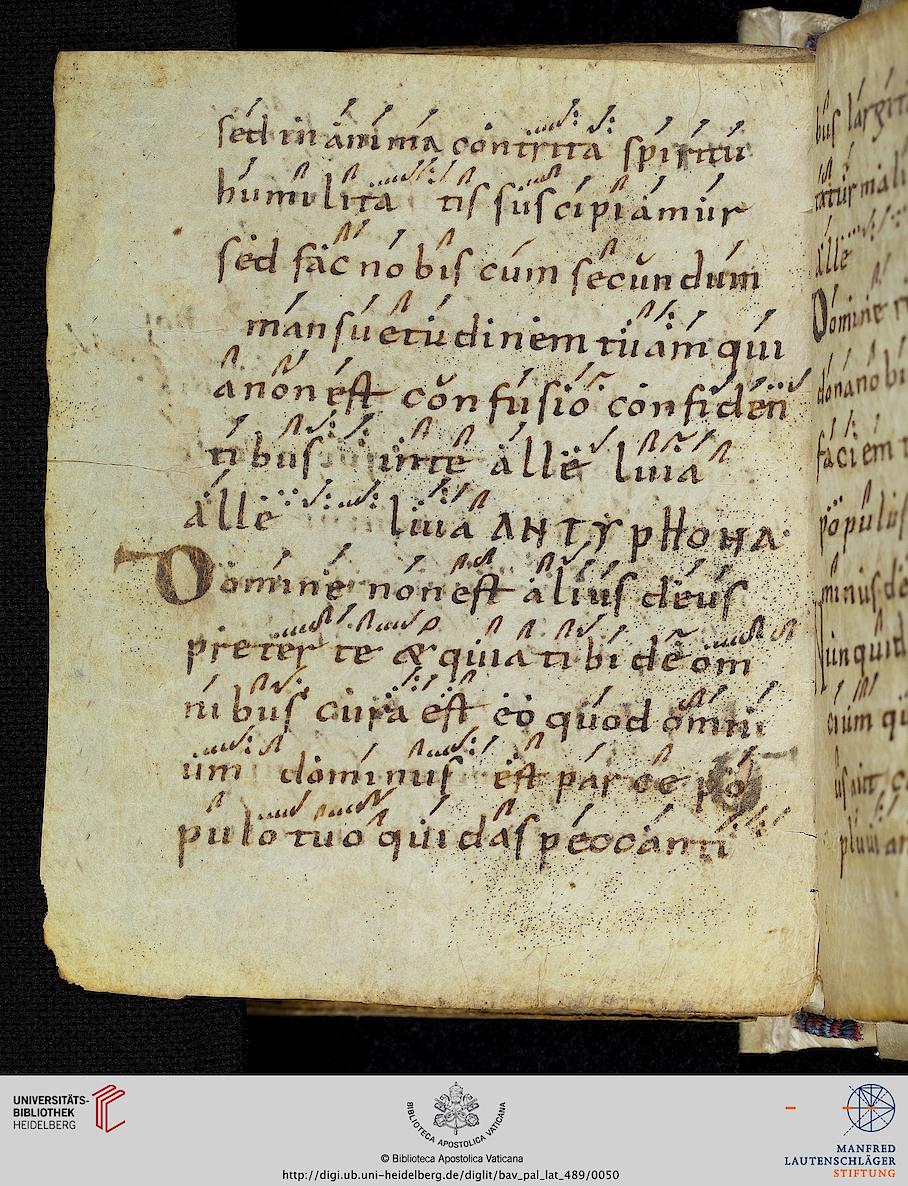 sed in anima contrita spiritu
humilita tis suscipiamur
sed fac nobis cum secundum
mansuetudinem tuam qui
a non est confusio confiden
tibus in te alle luia
alle luia ANTYPHONA
Domine non est alius deus
preter te & quia tibi de om
nibus cura est eo quod omni
um dominus est parce po
pulo tuo qui das peccanti
bus largit
alle
Domine
dona nobi
faciem
populus
minus de
unquid
UNIVERSITÄTS-
BIBLIOTHEK
HEIDELBERG
BIBLIOTECA APOSTOLICA VATICANA
© Biblioteca Apostolica Vaticana
http://digi.ub.uni-heidelberg.de/diglit/bav_pal_lat_489/0050
MANFRED
LAUTENSCHLÄGER
STIFTUNG